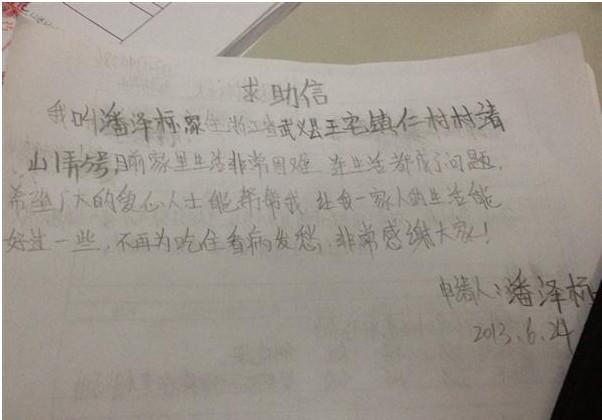 求助信
我叫潘泽标家住浙江省武义县王宅镇仁村村渚
山弄号目前家里生活非常困难 连生活都成了问题.
希望广大的爱心人士能帮帮我 让我一家人的生活能
好过一些,不再为吃住看病发愁.非常感谢大家!
申请人:潘泽标
2013.6.24